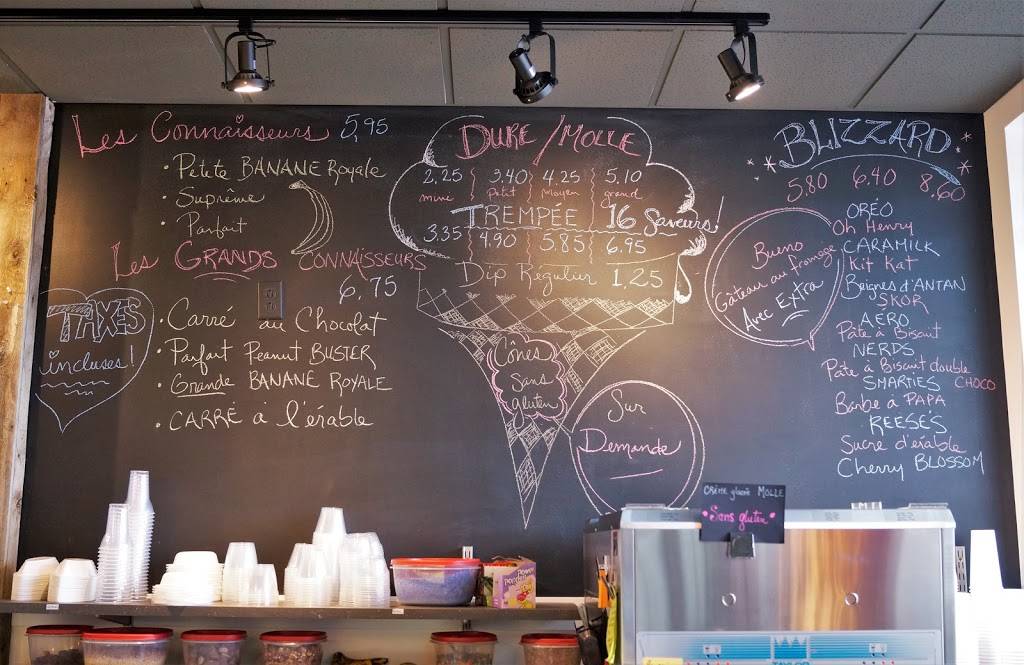 Les Connaisseurs 5,95
• Petite BANANE Royale
• Suprême
• Parfait
Les GRANDS CONNAISSEURS
6,75
• Carré au Chocolat
• Parfait Peanut BUSTER
• Grande BANANE ROYALE
• CARRÉ à l'érable
TAXES
incluses!
DURE/MOLLE
2,25 3,40 4,25 5,10
mini petit moyen grand
TREMPÉE 16 Saveurs!
3,35 4,90 5,85 6,95
Dip Régulier 1,25
Cônes
Sans
gluten
Sur
Demande
BLIZZARD
5,80 6,40 8,60
Bueno
Gâteau au fromage
Avec Extra
ORÉO
Oh Henry
CARAMILK
Kit Kat
Beignes d'ANTAN
SKOR
AERO
Pâte à Biscuit
NERDS
Pâte à Biscuit double
CHOCO
SMARTIES
Barbe à PAPA
REESE'S
Sucre d'érable
Cherry BLOSSOM
CRÈME glacée MOLLE
Sans gluten
TAYLOR